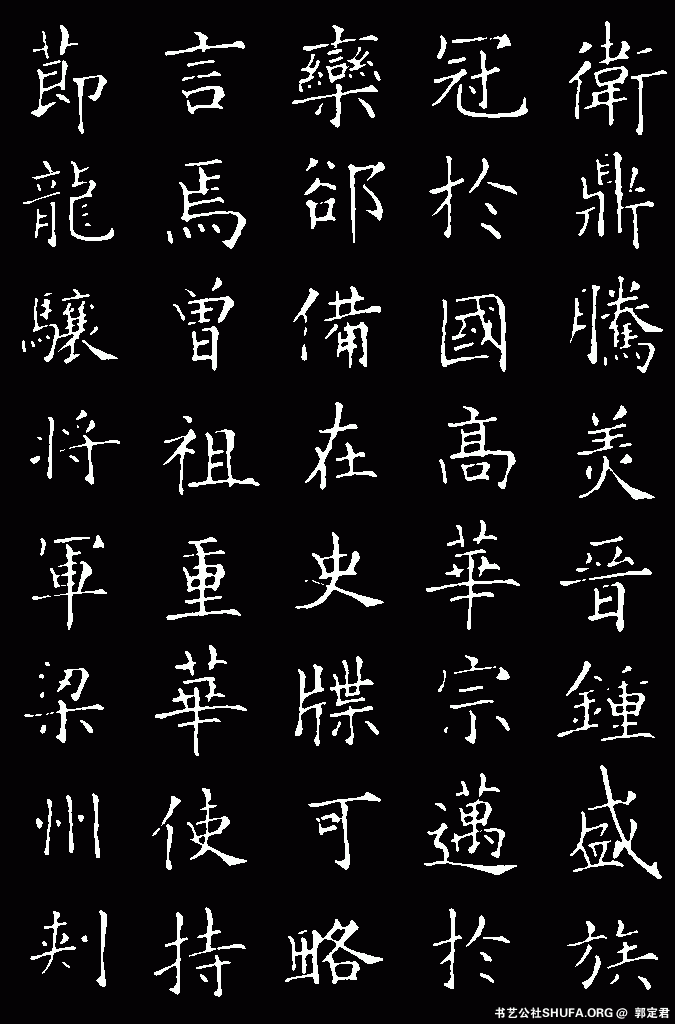 衛鼎騰美晉鍾盛族
冠於國高華宗邁於
欒郤備在史牒可略
言焉曾祖重華使持
節龍驤將軍梁州刾
书艺公社SHUFA.ORG @ 郭定君